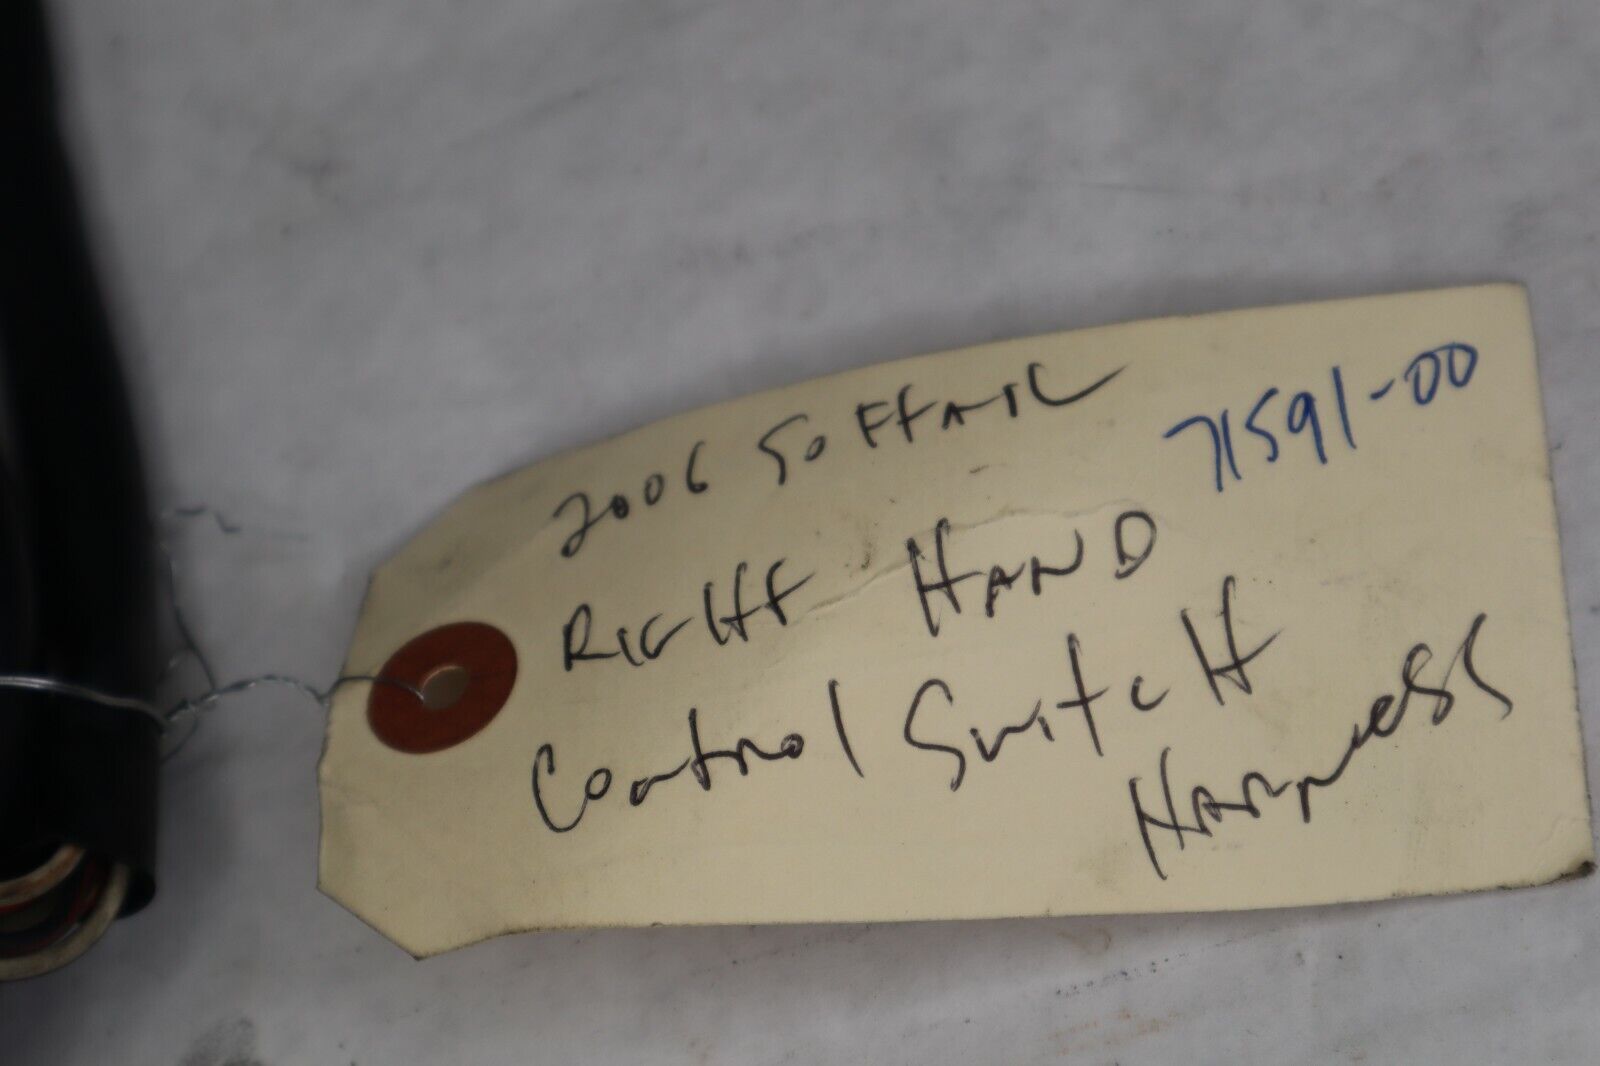 2006 SOFTAIL
71591-00
RIGHT HAND
Control Switch
Harness